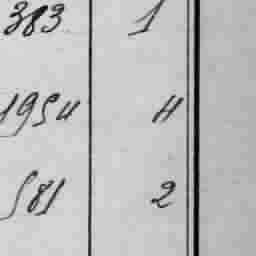 383 1
1954 4
581 2